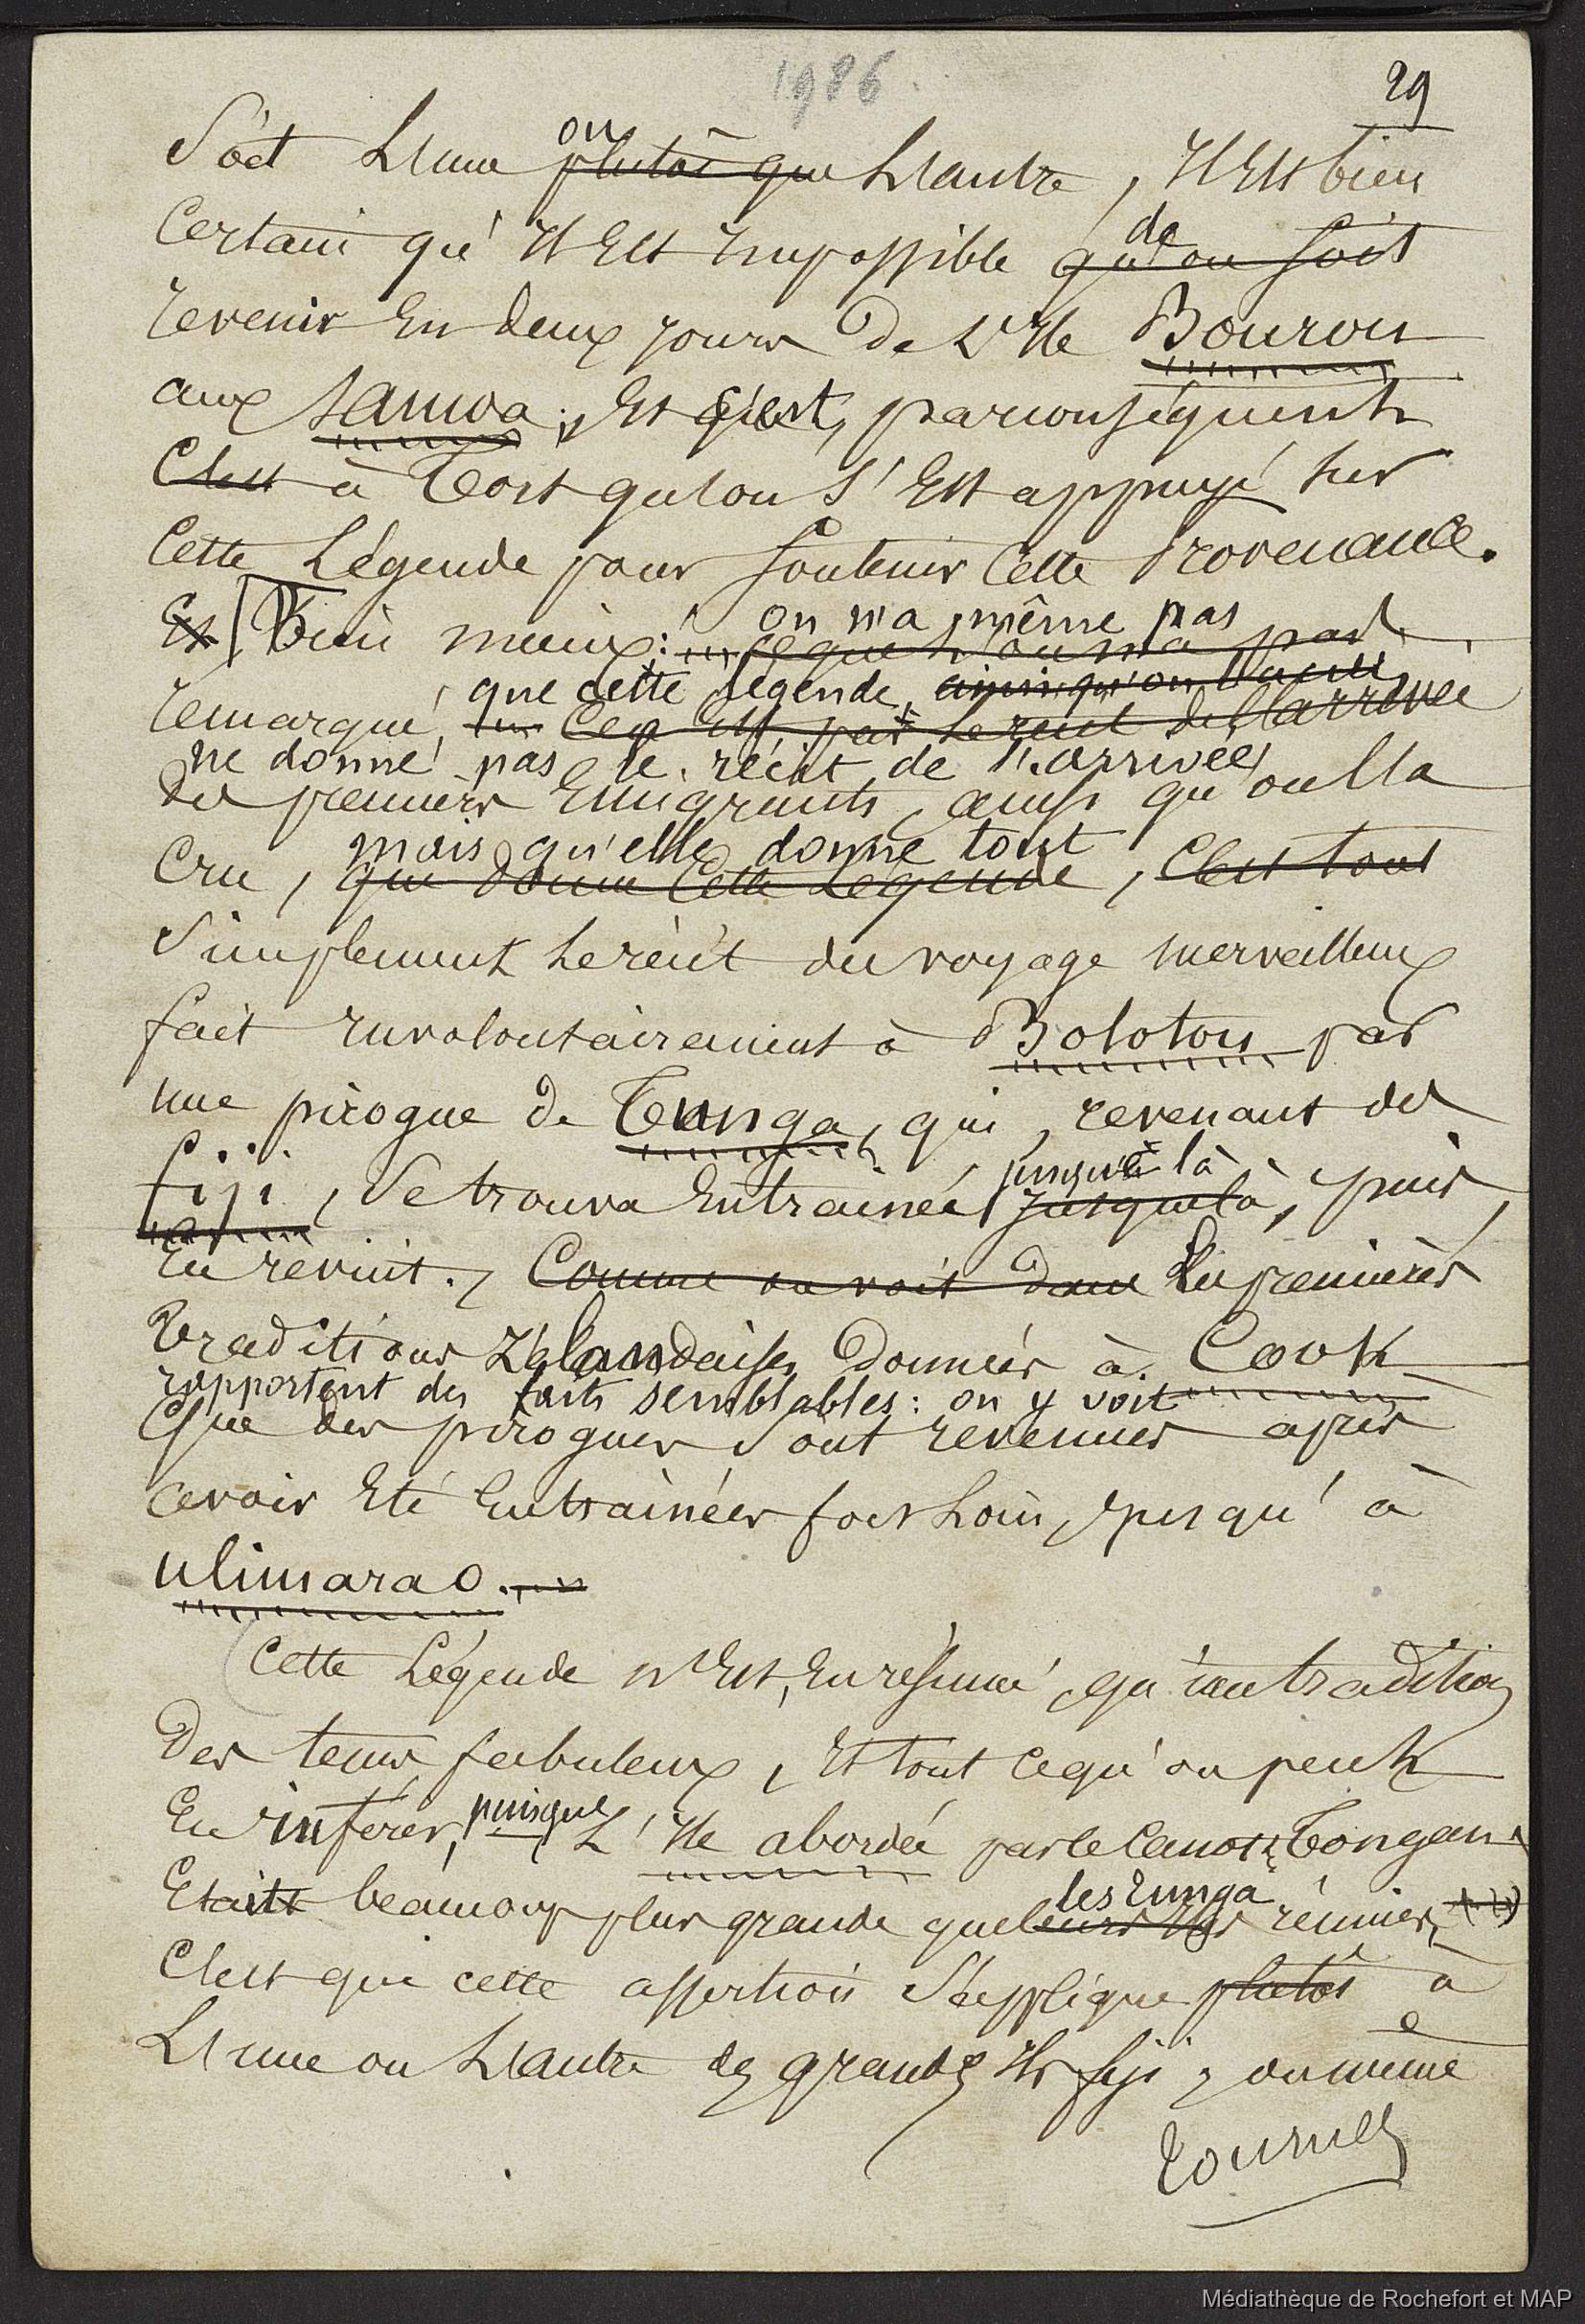 1986.
29
Soit L'une ou plutôt que L'autre, Il Est bien
Certain qu'Il Est Impossible de qu'on soit
revenir En deux jours de L'Ile Bourou
aux Samoa; Et c'est, par conséquent,
C'est à Tort qu'on s'Est appuyé sur
Cette Légende pour soutenir Cette Provenance.
Et Bien mieux: on n'a même pas
ce que l'on n'a pas
que cette légende, ainsi qu'on l'a cru,
remarqué, Ce n'Est pas Le récit de l'arrivée
ne donne pas le récit de l'arrivée
des premiers Emigrants, ainsi qu'on l'a
mais qu'elle donne tout
Cru, que donne Cette Légende, C'est tout
Simplement Le récit du voyage merveilleux
fait Involontairement à Bolotou par
une pirogue de Tunga, qui, revenant des
fiji, se trouva Entrainée jusque là jusque là, puis,
En revint. Comme on voit dans Les premières
Traditions Zélandaises Données à Cook
rapportent des faits semblables: on y voit
Que des pirogues sont revenues après
avoir Eté Entrainées fort Loin, jusqu'à
ulimarao.
Cette Légende n'Est, En résumé, qu'une tradition
Des tems fabuleux, Et tout ce qu'on peut
En inférer, puisque L'Ile abordée par le Canot Tongan
Etait beaucoup plus grande que les Tunga leurs Iles réunies,
C'est que cette assertion s'applique plutôt à
L'une ou L'autre des grandes Iles fiji, ou même
Tournez
Médiathèque de Rochefort et MAP